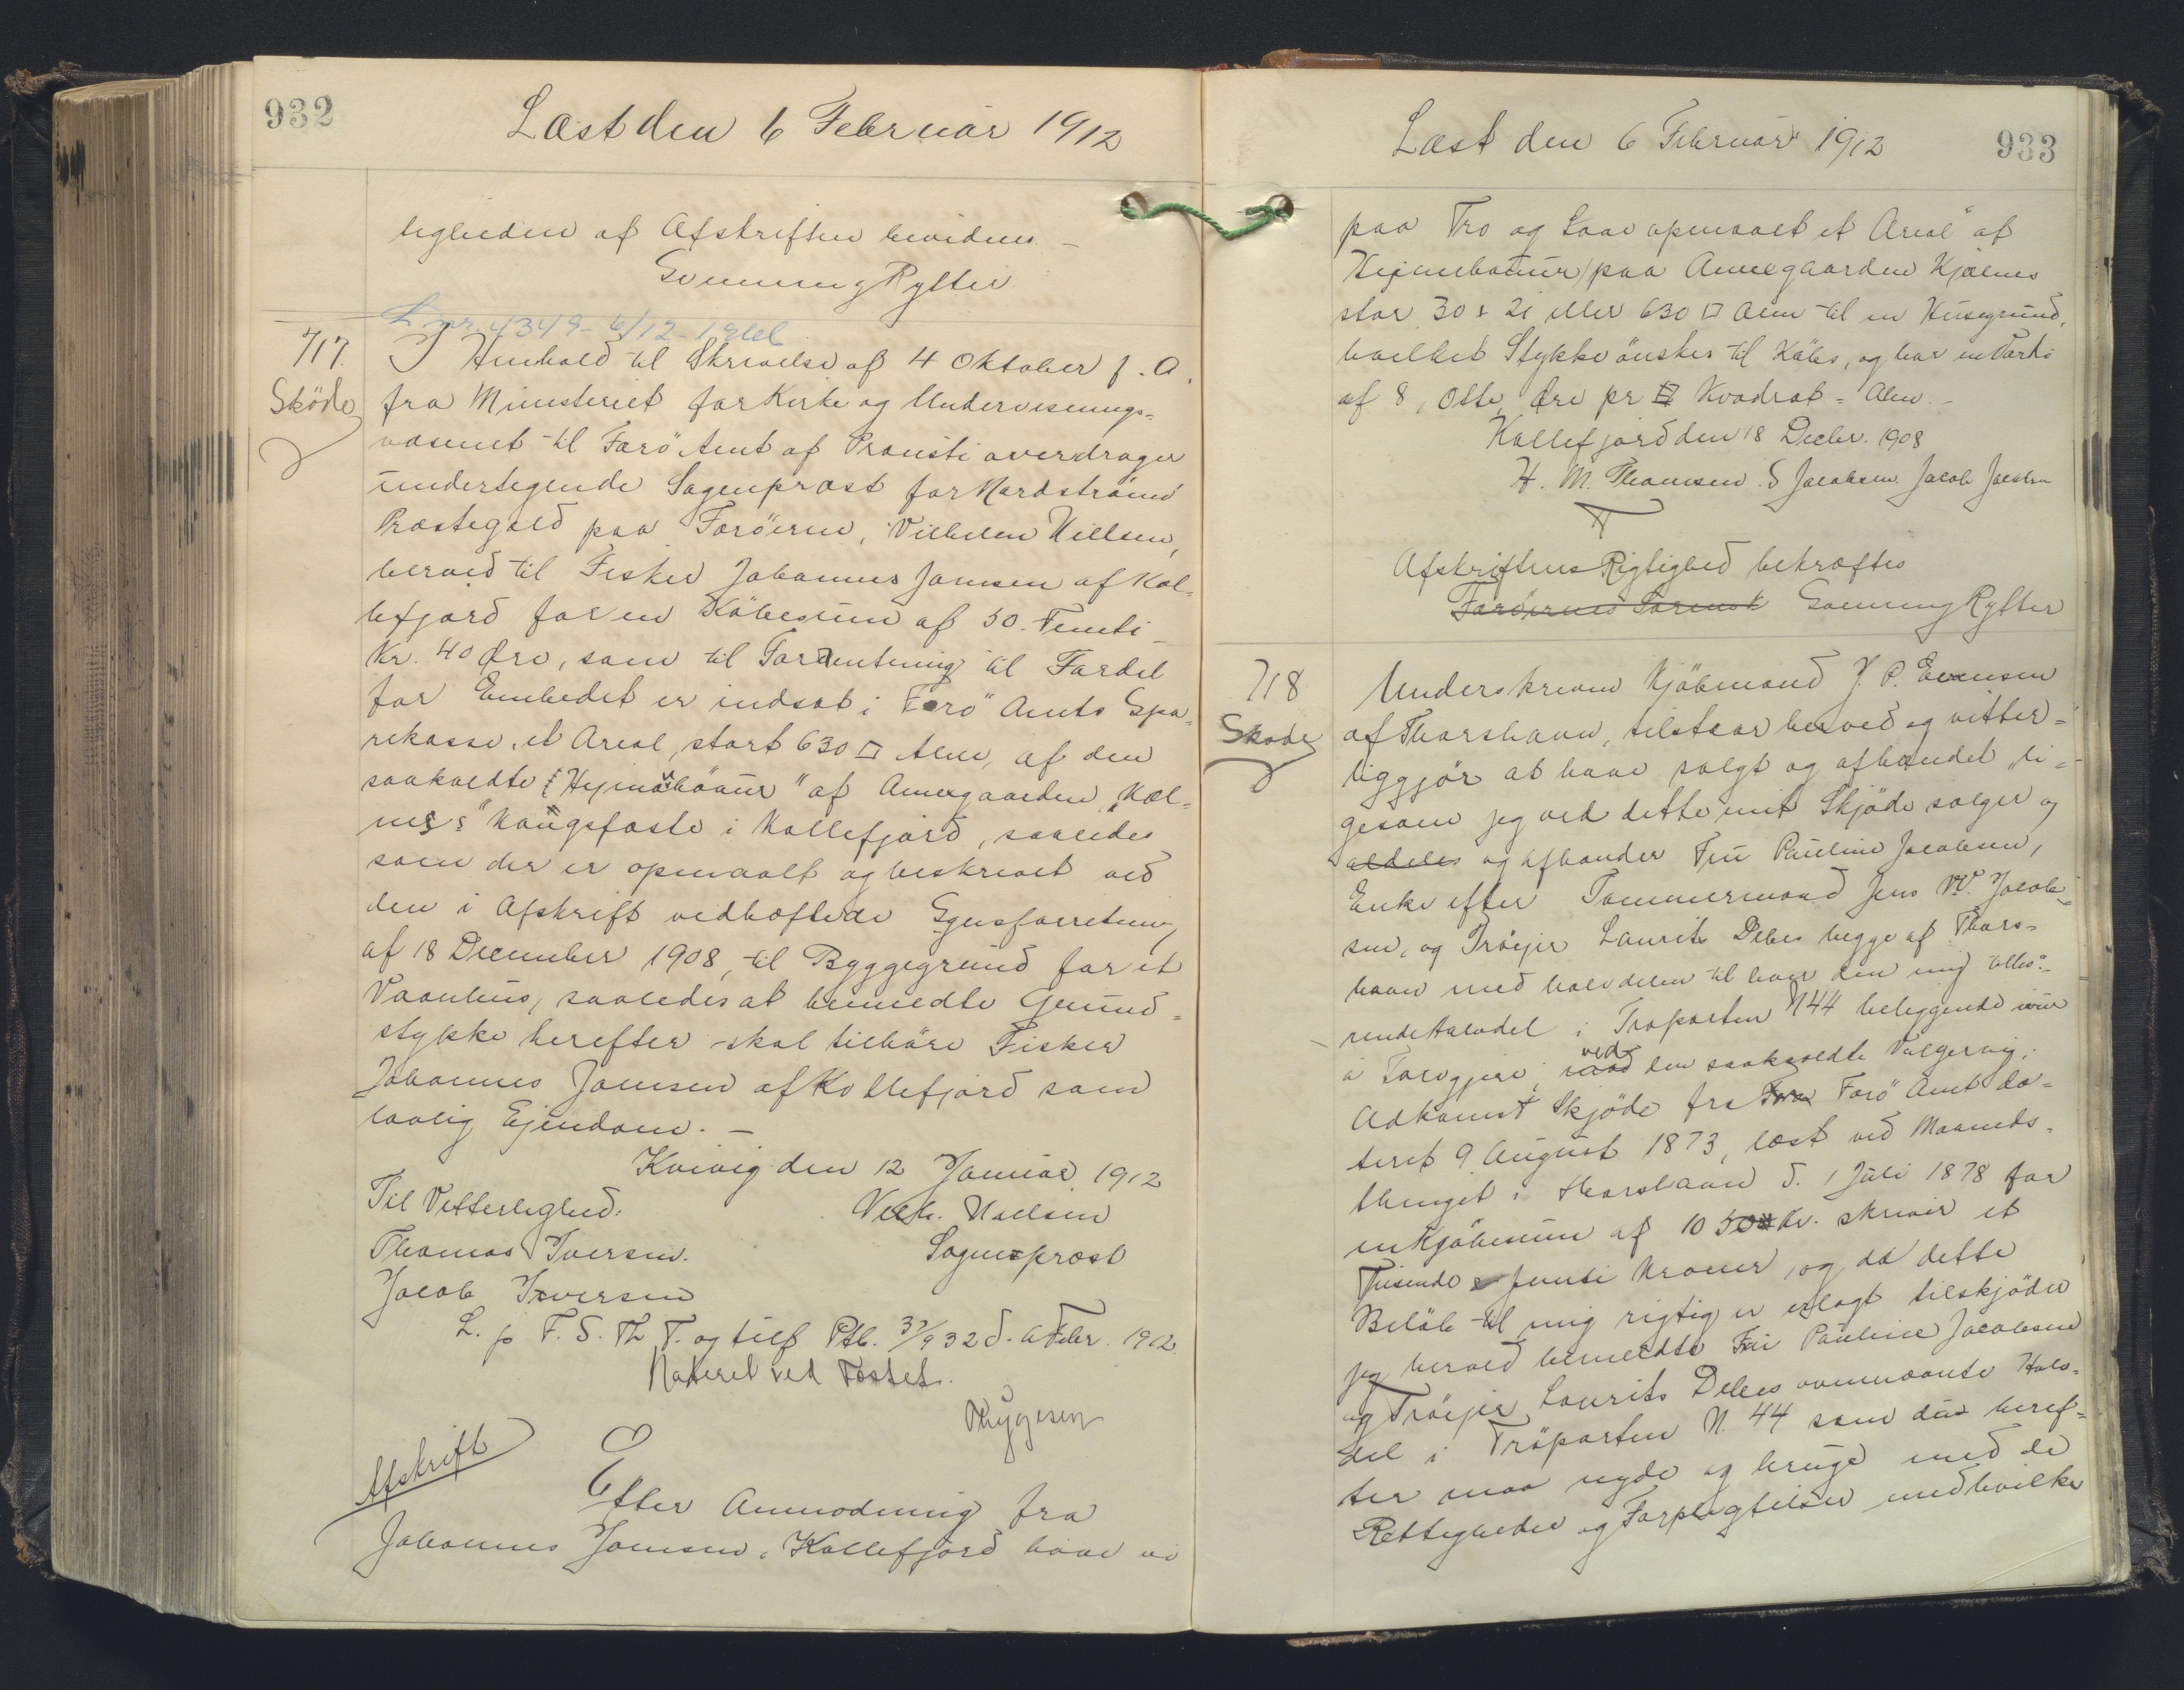 932
Læst den 6 Februar 1912
tigheden af Afskriften bevidnes. —
Gvenning Rytter
L nr. 4349 - 6/12 - 19
717.
Sköde
I Henhold til Skrivelse af 4 Oktober f. A.
fra Ministeriet for Kirke og Undervisnings=
væsenet til Færö Amt af Provsti overdrager
undertegnede Sognepræst for Nordströmö
Præstegæld paa Færöerne, Vilhelm Nielsen,
herved til Fisker Johannes Joensen af Kol=
lefjord for en Köbesum af 50. Femti
Kr. 40 Øre, som til Forrentning til Fordel
for Embedet er indsat i Færö Amts Spa=
rekasse, et Areal, stort 630 □ Alen, af den
saakaldte "Hejmaböaur" af Annexgaarden "Kæl=
nes" Kongsfæste i Kollefjord, saaledes
som der er opmaalt og beskrevet ved
den i Afskrift vedhæftede Synsforretning
af 18 December 1908, til Byggegrund for et
Vaanhus, saaledes at bemeldte Grund=
stykke herefter skal tilhöre Fisker
Johannes Joensen af Kollefjord som
lovlig Ejendom. —
Kvivig den 12 Januar 1912
Til Vitterlighed.
Vilh. Nielsen
Thomas Iversen.
Sognepræst
Jacob Iversen
L. p F. S. Th T. og tilf Ptb. 932 d. 6 Febr. 1912.
Noteret ved Fæstet.
Thygesen
Afskrift
Efter Anmodning fra
Johannes Joensen, Kollefjord have vi
Læst den 6 Februar 1912
933
paa Tro og Love opmaalt et Areal af
Hejmeboaur paa Annexgaarden Kjælnes
stor 30 x 21 eller 630 □ Alen til en Husegrund,
hvilket Stykke önskes til Köbs, og har en Værdi
af 8, Otte, Øre pr □ Kvadrat = Alen. —
Kollefjord den 18 Decbr. 1908
H. M. Thomsen. S Jacobsen. Jacob Jacobsen
Afskriftens Rigtighed bekræftes
Færöernes Sorensk Gvenning Rytter
718
Skøde
Underskrevne Kjöbmand J. P. Evensen
af Thorshavn, tilstaar herved og vitter=
liggjör at have solgt og afhændet, li=
gesom jeg ved dette mit Skjöde sælger og
aldeles og afhænder Fru Pauline Jacobsen,
Enke efter Tömmermand Jens W. Jacob=
sen, og Tröejer Laurits Debes begge af Thors=
havn med halvdelen til hver den mig tilhö=
rende Halvdel i Tröparten N 44 beliggende
i Torvgjere, ved den saakaldte Valgervig;
Adkomst Skjöde fra Færö Amt da=
teret 9 August 1873, læst ved Maaneds=
thinget i Thorshavn d. 1 Juli 1878 for
en Kjöbesum af 1050 Kr. skriver et
Tusende femti Kroner, og da dette
Belöb til mig rigtig er erlagt tilskjöder
jeg herved bemeldte Fru Pauline Jacobsen
og Tröejer Laurits Debes ovennævnte Halv=
del i Tröparten N. 44 som de heref=
ter maa nyde og bruge med de
Rettigheder og Forpligtelser med hvilke